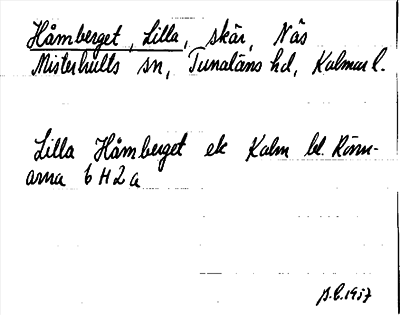 Håmberget, Lilla, skär, Näs
Misterhults sn, Tunaläns hd, Kalmar l.
Lilla Håmberget ek Kalm bl. Rönn-
arna 6 H 2 a
1957